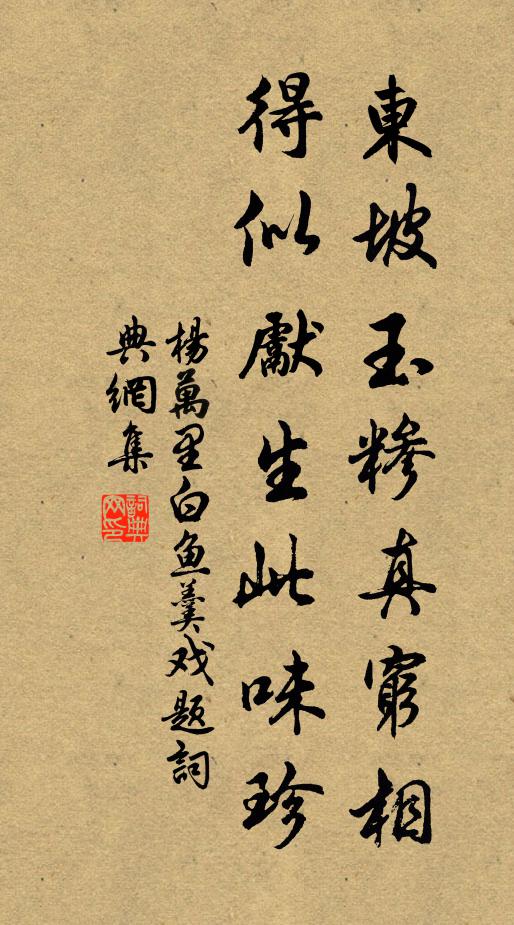 東坡玉糝真窮相
得似獻生此味珍
楊萬里白魚羹戏題詞
典網集
詞典
网印